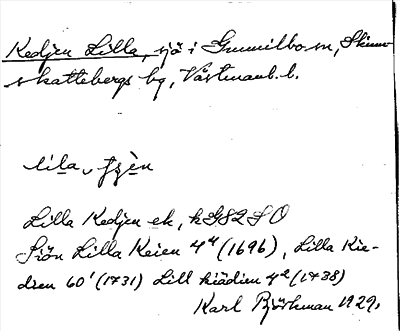 Kedjen Lilla, sjö i Gunnilbo sn, Skinn-
skattebergs hg, Västmanl. l.
lila,
Lilla Kedjen ek, k GS2 SO
Siön Lilla Keien 4⁴ (1696), Lilla Kie-
dien 60¹ (1731) Lill kiädien 4² (1738)
Karl Björkman 1929.